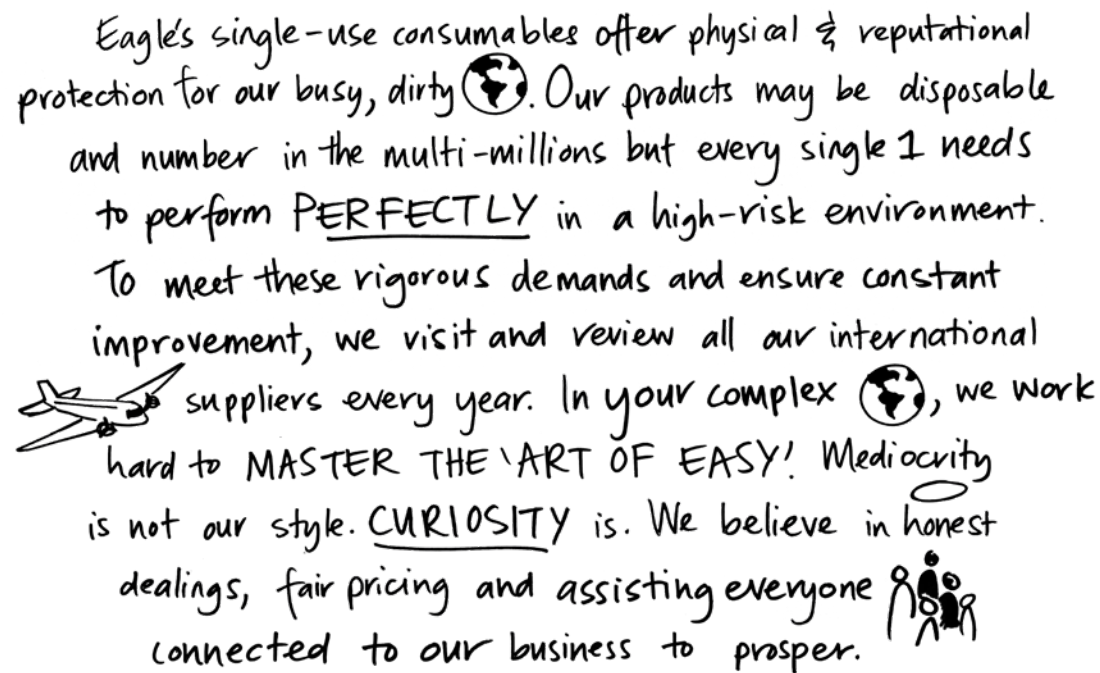 Eagle's single-use consumables offer physical & reputational
protection for our busy, dirty . Our products may be disposable
and number in the multi-millions but every single 1 needs
to perform PERFECTLY in a high-risk environment.
To meet these rigorous demands and ensure constant
improvement, we visit and review all our international
suppliers every year. In your complex , we work
hard to MASTER THE 'ART OF EASY'! Mediocrity
is not our style. CURIOSITY is. We believe in honest
dealings, fair pricing and assisting everyone
connected to our business to prosper.